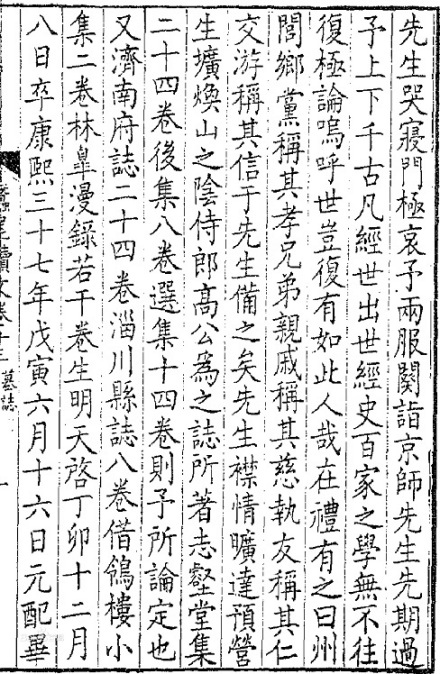 先生哭寢門極哀予兩服闋詣京師先生先期過
予上下千古凡經世出世經史百家之學無不往
復極論嗚呼世豈復有如此人哉在禮有之曰州
閭鄉黨稱其孝兄弟親戚稱其慈執友稱其仁
交游稱其信于先生備之矣先生襟情曠達預營
生壙煥山之陰侍郎高公為之誌所著志壑堂集
二十四卷後集八卷選集十四卷則予所論定也
又濟南府誌二十四卷淄川縣誌八卷借鴿樓小
集二卷林臯漫錄若干卷生明天啓丁卯十二月
八日卒康熙三十七年戊寅六月十六日元配畢
蠶尾續文卷十三 墓誌 一